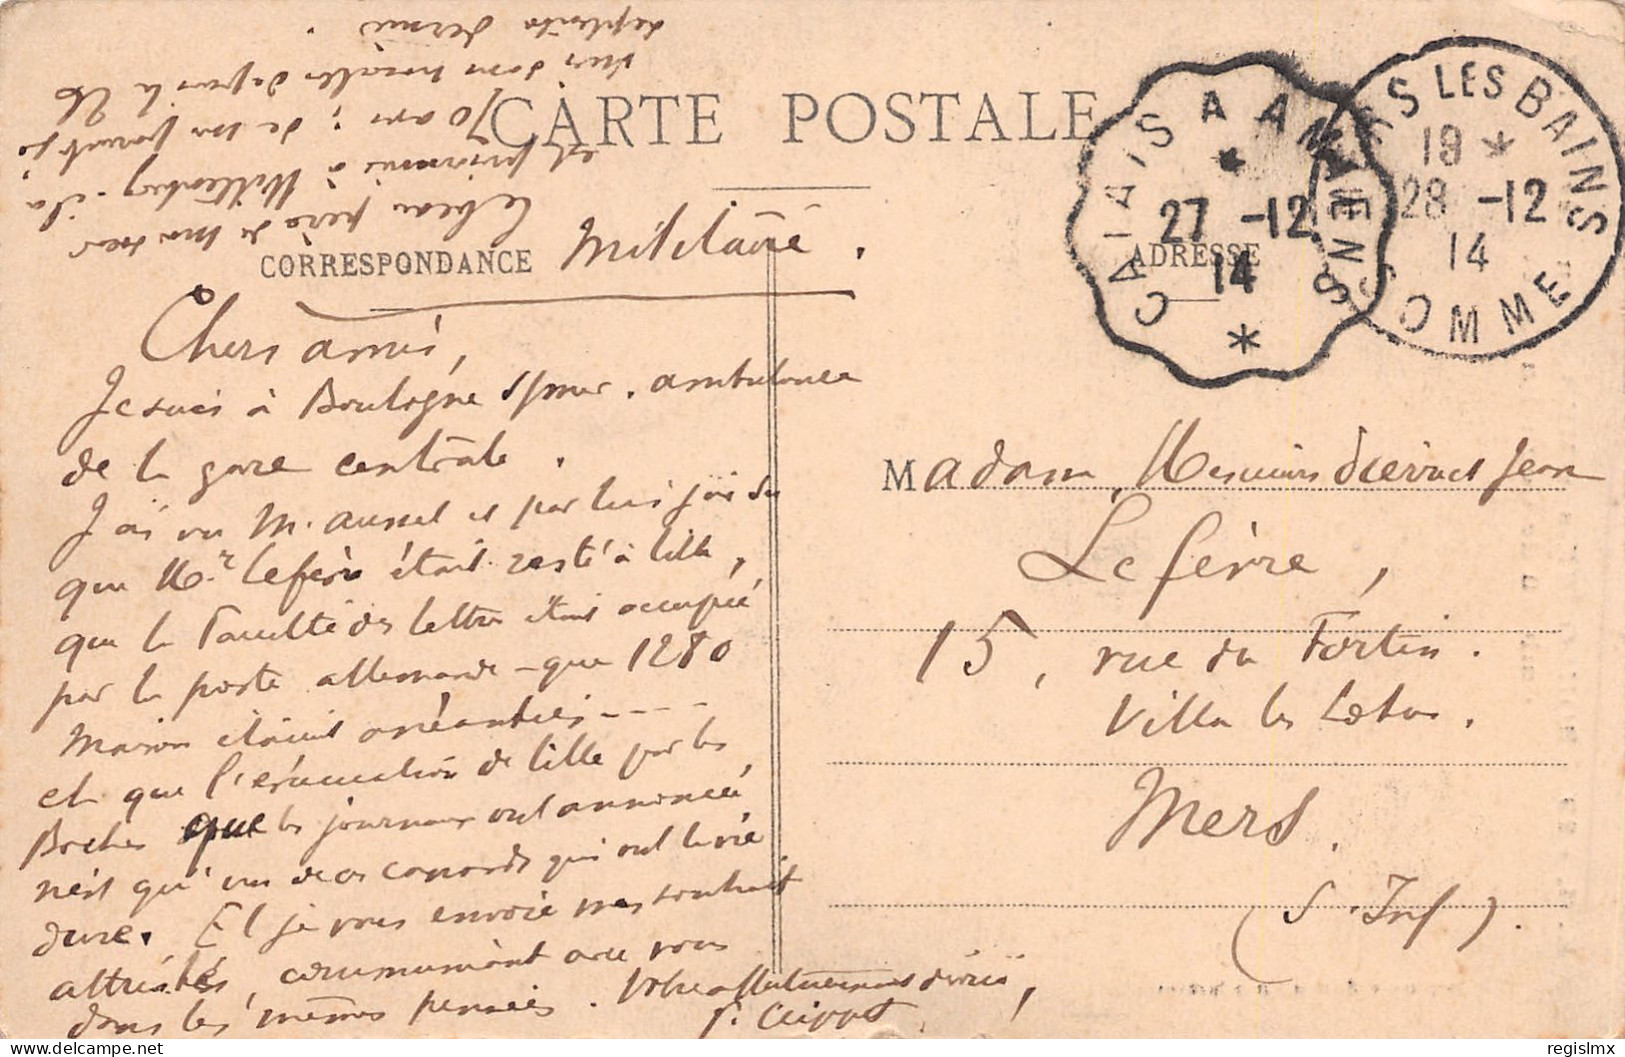 CARTE POSTALE
CORRESPONDANCE
Militaire.
ADRESSE
CALAIS A AMIENS
27 -12
14
MERS LES BAINS
19 *
28 -12
14
SOMME
Chers amis,
Je suis à Boulogne s/mer. ambulance
de la gare centrale.
J'ai vu M. et par lui j'ai su
que Mr. Lefèvre était resté à Lille,
que la Faculté des lettres était occupée
par la poste allemande - que 1280
maisons étaient anéanties ----
et que l'évacuation de Lille par les
Boches que les journaux ont annoncée
n'est qu'un de ces canards qui ont la vie
dure. Et je vous envoie mes souhaits
attristés, communiant avec vous
dans les mêmes pensées. Votre affectueusement dévoué,
le beau père de ma sœur
est prisonnier à Wittenberg - il a
70 ans ; de mes parents je
suis sans nouvelles depuis le 26
septembre dernier.
Madame Jean
Lefèvre,
15, rue du Fortin.
Villa les Lotus.
Mers.
(S. Inf).
regislmx